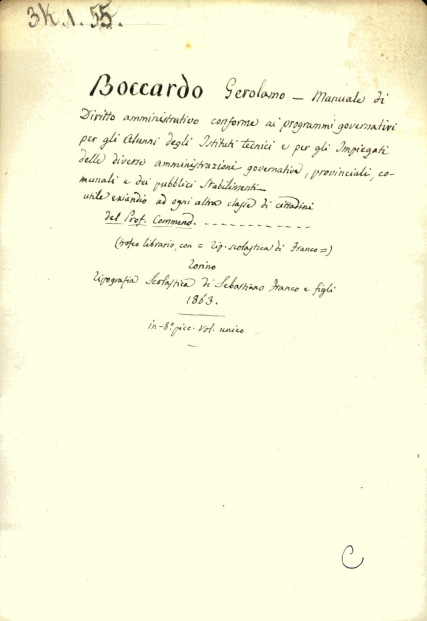 3K.1.55.
Boccardo Gerolamo — Manuale di
Diritto amministrativo conforme ai programmi governativi
per gli Alunni degli Istituti tecnici e per gli Impiegati
delle diverse amministrazioni governative, provinciali, co-
munali e dei pubblici Stabilimenti —
utile eziandio ad ogni altra classe di cittadini
del Prof. Commend. - - - - - - - - - - - -
(trofeo librario, con = Tip. scolastica di Franco =)
Torino
Tipografia Scolastica di Sebastiano Franco e figli
1863.
in-8° picc. Vol. unico —
C